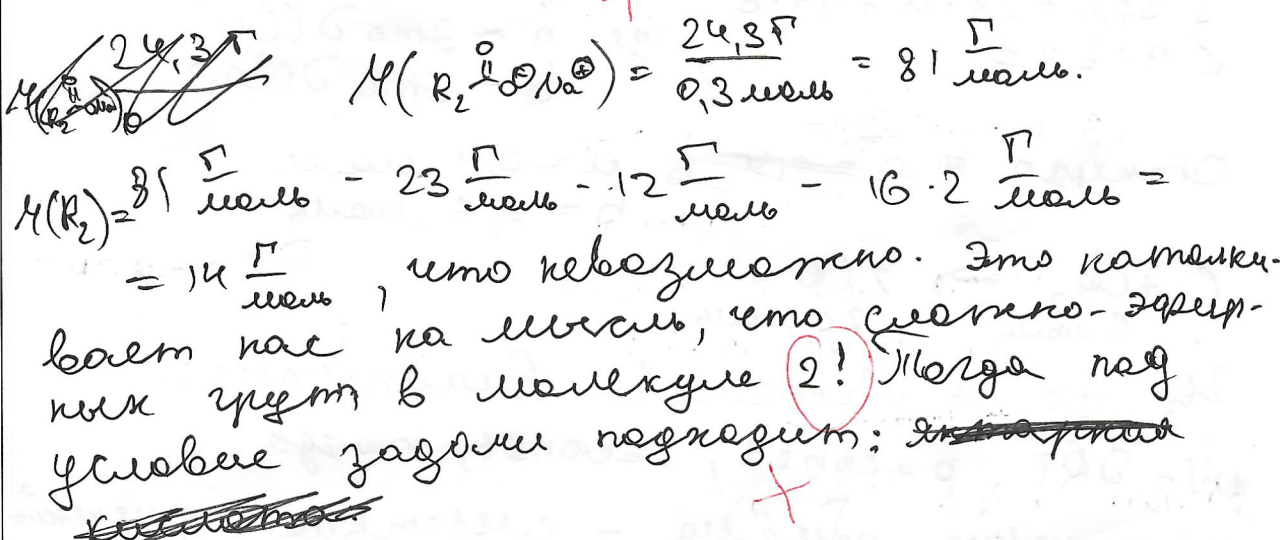 M(R₂COO⊖Na⊕) = 24,3 г / 0,3 моль = 81 г/моль.
M(R₂) = 81 г/моль - 23 г/моль - 12 г/моль - 16·2 г/моль =
= 14 г/моль, что невозможно. Это наталки-
вает нас на мысль, что сложно-эфир-
ных групп в молекуле 2! Тогда под
условие задачи подходит: